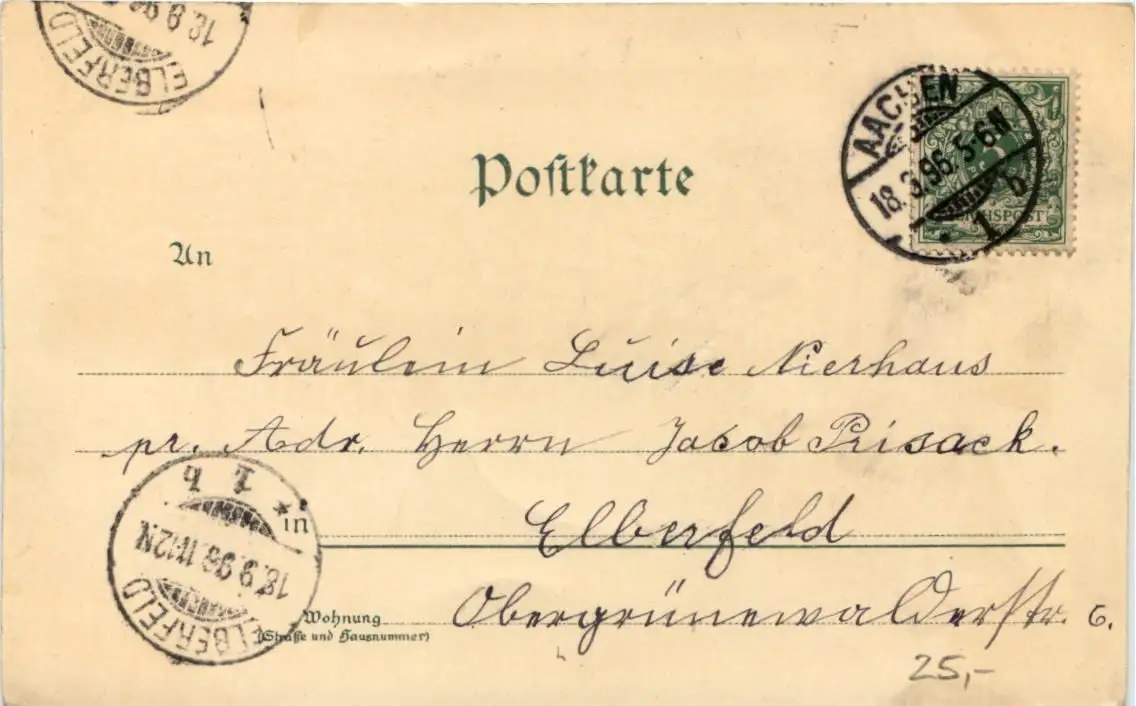 ELBERFELD
18 9 98
AACHEN
18.9.98. 5-6N
1 b
REICHSPOST
Postkarte
An
Fräulein Luise Nierhaus
pr. Adr. Herrn Jacob Prisack.
in Elberfeld
Wohnung
(Straße und Hausnummer)
Obergrünewalderstr. 6.
ELBERFELD
18.9.98.11-12N.
1 b
25,-